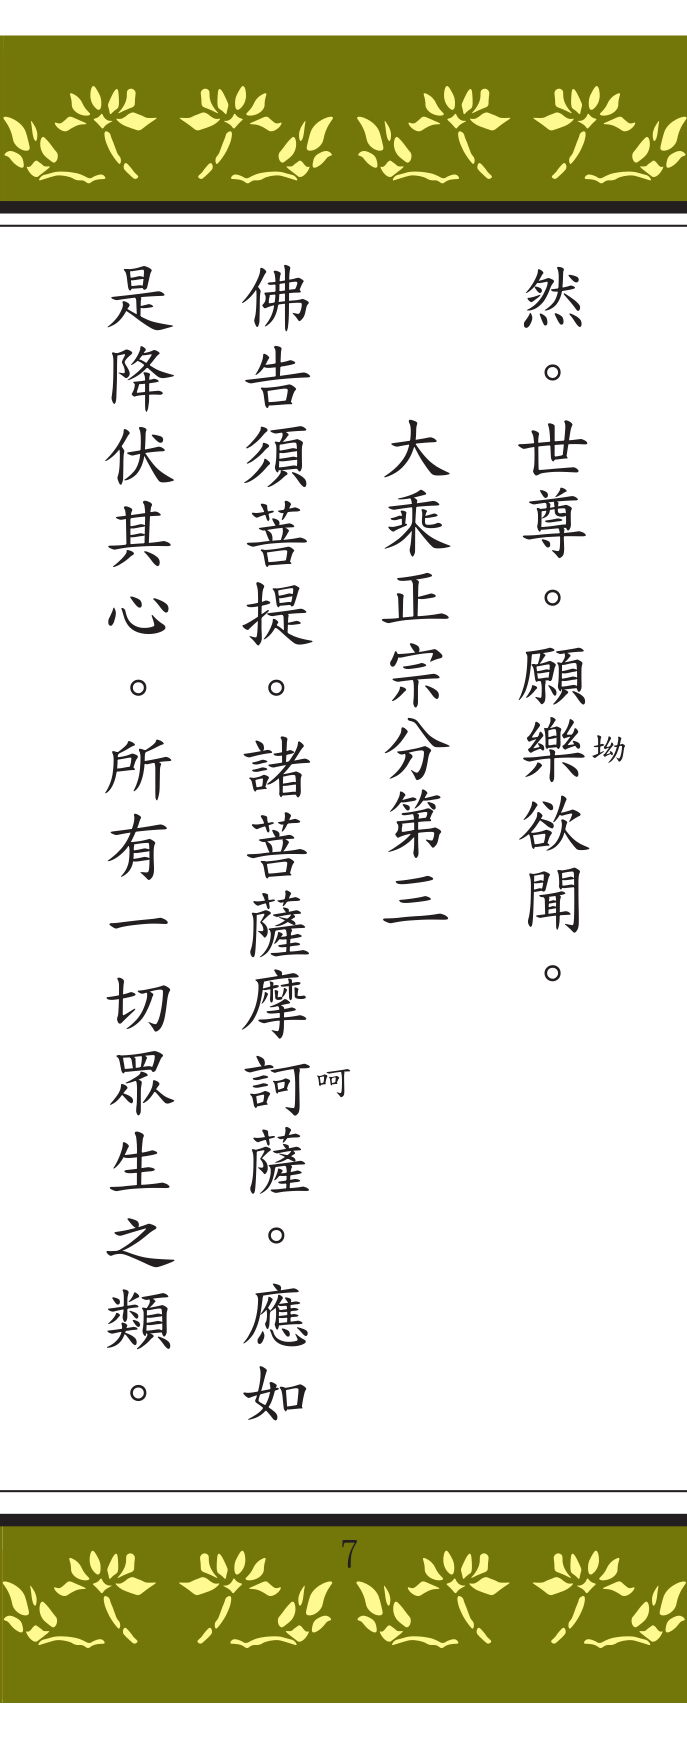 然。世尊。願樂欲聞。
坳
大乘正宗分第三
佛告須菩提。諸菩薩摩訶薩。應如
呵
是降伏其心。所有一切眾生之類。
7